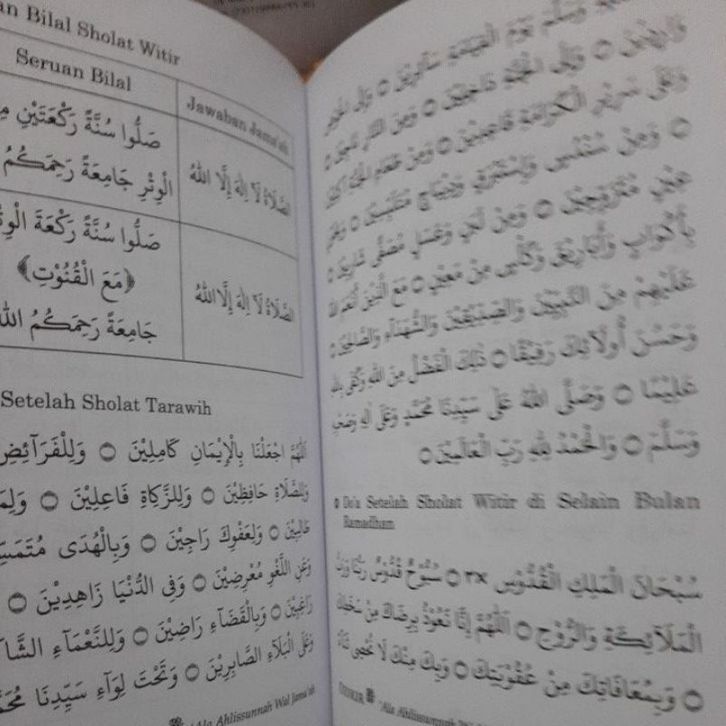 an Bilal Sholat Witir
Seruan Bilal
Jawaban Jama'ah
صَلُّوا سُنَّةً رَكْعَتَيْنِ
الْوِتْرِ جَامِعَةً رَحِمَكُمُ
الصَّلَاةُ لَا إِلٰهَ إِلَّا اللهُ
صَلُّوا سُنَّةً رَكْعَةَ
﴿مَعَ الْقُنُوْتِ﴾
جَامِعَةً رَحِمَكُمُ
الصَّلَاةُ لَا إِلٰهَ إِلَّا اللهُ
Setelah Sholat Tarawih
اَللّٰهُمَّ اجْعَلْنَا بِالْإِيْمَانِ كَامِلِيْنَ ۝ وَلِلْفَرَآئِضِ
وَلِلصَّلَاةِ حَافِظِيْنَ ۝ وَلِلزَّكَاةِ فَاعِلِيْنَ ۝
طَالِبِيْنَ ۝ وَلِعَفْوِكَ رَاجِيْنَ ۝ وَبِالْهُدَى
وَعَنِ اللَّغْوِ مُعْرِضِيْنَ ۝ وَفِي الدُّنْيَا زَاهِدِيْنَ ۝
رَاغِبِيْنَ ۝ وَبِالْقَضَاءِ رَاضِيْنَ ۝ وَلِلنَّعْمَاءِ
وَعَلَى الْبَلَاءِ الصَّابِرِيْنَ ۝ وَتَحْتَ لِوَاءِ سَيِّدِنَا
'Ala Ahlissunnah Wal Jama'ah
وَسَلَّمَ يَوْمَ الْقِيَامَةِ سَآئِرِيْنَ ۝ وَإِلَى الْحَوْضِ
وَارِدِيْنَ ۝ وَإِلَى الْجَنَّةِ دَاخِلِيْنَ ۝ وَمِنَ النَّارِ نَاجِيْنَ ۝
وَعَلَى سَرِيْرِ الْكَرَامَةِ قَاعِدِيْنَ ۝ وَمِنْ طَعَامِ الْجَنَّةِ آكِلِيْنَ
۝ وَمِنْ سُنْدُسٍ وَإِسْتَبْرَقٍ وَدِيْبَاجٍ مُتَلَبِّسِيْنَ ۝
عِيْنٍ مُتَزَوِّجِيْنَ ۝ وَمِنْ لَبَنٍ وَعَسَلٍ مُصَفًّى شَارِبِيْنَ ۝
بِأَكْوَابٍ وَأَبَارِيْقَ وَكَأْسٍ مِنْ مَعِيْنٍ ۝ مَعَ الَّذِيْنَ أَنْعَمَ اللهُ
عَلَيْهِمْ مِنَ النَّبِيِّيْنَ وَالصِّدِّيْقِيْنَ وَالشُّهَدَآءِ وَالصَّالِحِيْنَ ۝
وَحَسُنَ أُولَائِكَ رَفِيْقًا ۝ ذٰلِكَ الْفَضْلُ مِنَ اللهِ وَكَفَى بِاللهِ
عَلِيْمًا ۝ وَصَلَّى اللهُ عَلَى سَيِّدِنَا مُحَمَّدٍ وَعَلَى آلِهِ وَصَحْبِهِ
وَسَلَّمَ ۝ وَالْحَمْدُ لِلّٰهِ رَبِّ الْعَالَمِيْنَ ۝
Do'a Setelah Sholat Witir di Selain Bulan
Ramadhan
سُبْحَانَ الْمَلِكِ الْقُدُّوْسِ ٣x ۝ سُبُّوْحٌ قُدُّوْسٌ رَبُّنَا وَرَبُّ
الْمَلَآئِكَةِ وَالرُّوْحِ ۝ اَللّٰهُمَّ إِنَّا نَعُوْذُ بِرِضَاكَ مِنْ سَخَطِكَ
۝ وَبِمُعَافَاتِكَ مِنْ عُقُوْبَتِكَ ۝ وَبِكَ مِنْكَ لَا نُحْصِي
'Ala Ahlissunnah